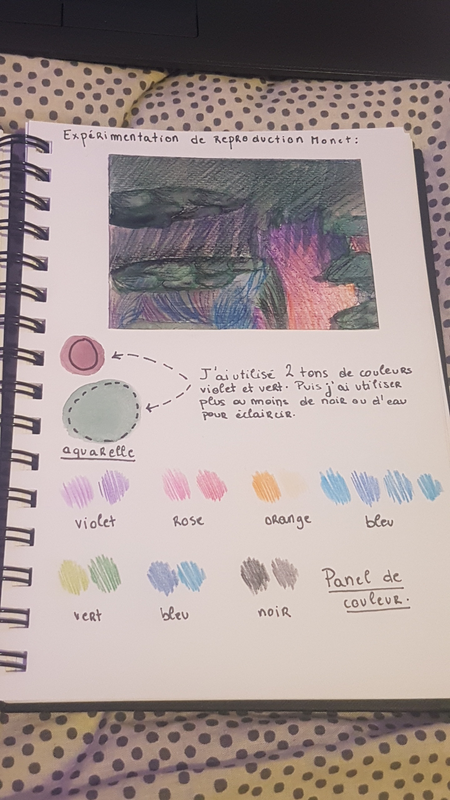 Expérimentation de Reproduction Monet:
J'ai utilisé 2 tons de couleurs
violet et vert. Puis j'ai utiliser
plus ou moins de noir ou d'eau
pour éclaircir.
aquarelle
violet Rose orange bleu
vert bleu noir
Panel de
couleur.